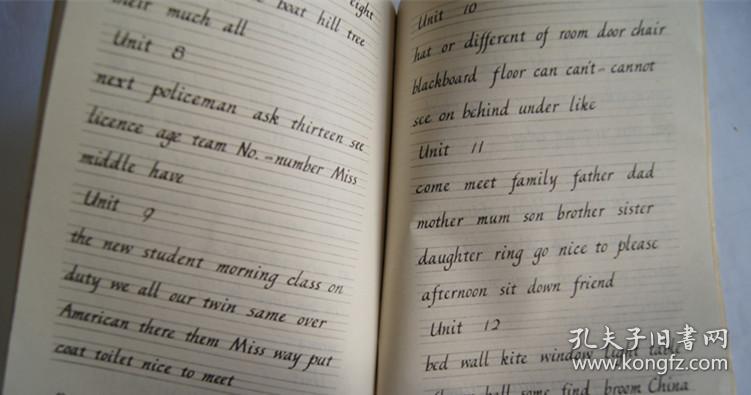 eight
their much all
boat hill tree
Unit 8
next policeman ask thirteen see
licence age team No.-number Miss
middle have
Unit 9
the new student morning class on
duty we all our twin same over
American there them Miss way put
coat toilet nice to meet
Unit 10
hat or different of room door chair
blackboard floor can can't-cannot
see on behind under like
Unit 11
come meet family father dad
mother mum son brother sister
daughter ring go nice to please
afternoon sit down friend
Unit 12
bed wall kite window light table
some find broom China
孔夫子旧书网
www.kongfz.com